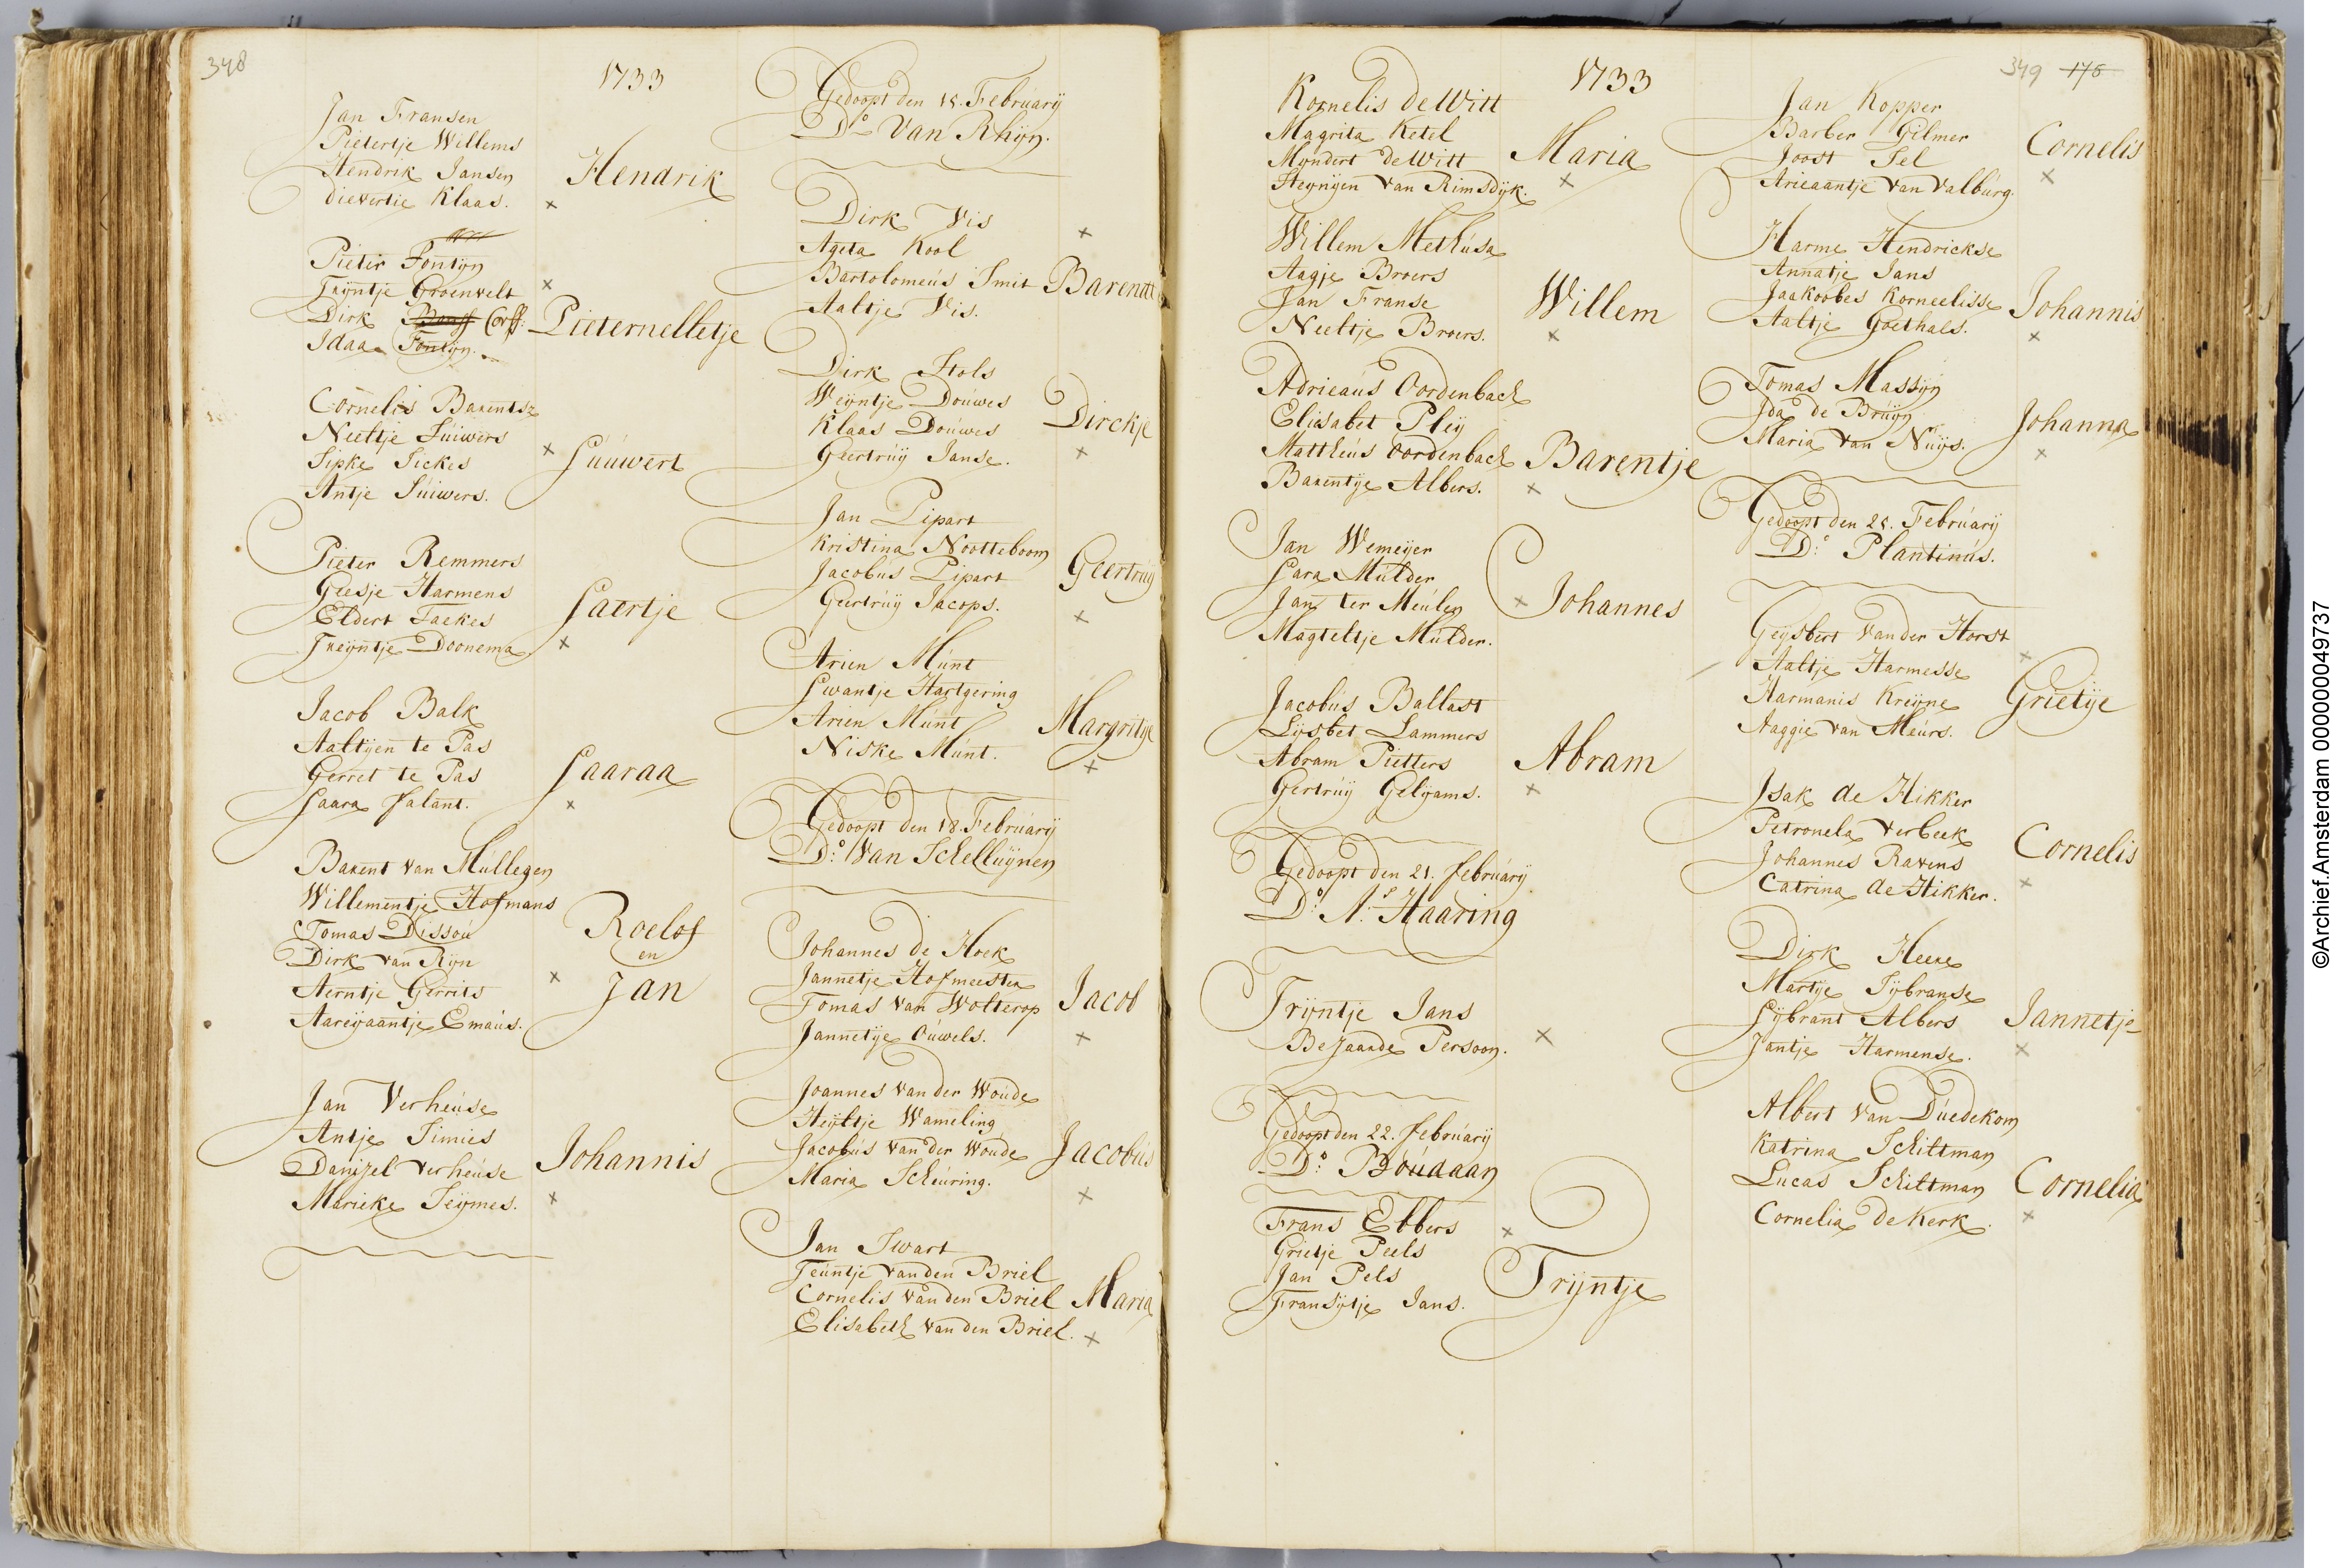 348
1733
Jan Fransen
Pietertje Willems
Hendrik Jansen
dievertie Klaas.
Hendrik
Pieter Fontyn
Tryntje Groenvelt
Dirk Corff.
Idaa Fontyn.
Pieternelletje
Cornelis Barentsz
Neeltje Súiwers
Sipke Sickes
Antje Súiwers.
Súúwert
Pieter Remmers
Geesje Harmens
Eldert Taekes
Treyntje Doonema
Saertje
Jacob Balk
Aaltyen te Pas
Gerret te Pas
Saara Salant.
Saaraa
Barent van Múllegen
Willementje Hofmans
Tomas Dissou
Dirk van Ryn
Aerntje Gerrits
Aareyaantje Emaús.
Roelof
en
Jan
Jan Verheúse
Antje Simies
Danizel verheúse
Marieke Seymes.
Johannis
Gedoopt den 15. Febrúarij
Do. Van Rhijn.
Dirk Vis
Ageta Kool
Bartolomeús Smit
Aaltje Vis.
Barent
Dirk Stols
Weyntje Doúwes
Klaas Doúwes
Geertrúy Janse.
Dirckje
Jan Lipart
Kristina Nootteboom
Jacobús Lipart
Geertrúy Jacops.
Geertrúy
Arien Múnt
Swantje Hartgering
Arien Múnt
Niske Múnt.
Margritje
Gedoopt den 18. Febrúarij
Do: Van Schellúynen
Johannes de Hoek
Jannetje Hofmeester
Tomas van Wolterop
Jannetye Oúwels.
Jacob
Joannes van der Woúde
Heyltje Wameling
Jacobús van der Woúde
Maria Scheúring.
Jacobús
Jan Swart
Teúntje van den Briel
Cornelis van den Briel
Elisabeth van den Briel.
Maria
1733
349 175
Kornelis de Witt
Magrita Ketel
Myndert de Witt
Steynyen van Rimsdyk.
Maria
Willem Methúsa
Aagje Broers
Jan Franse
Neeltje Broers.
Willem
Adrieaús Oordenbach
Elisabet Pley
Mattheús Oordenbach
Barentje Albers.
Barentje
Jan Wemeyer
Sara Múlder
Jan ter Meúlen
Magteltje Múlder.
Johannes
Jacobús Ballast
Lysbet Lammers
Abram Pietters
Gertrúy Gelyams.
Abram
Gedoopt den 21. febrúarij
Do: Ns. Haaring
Tryntje Jans
Bejaarde Persoon.
Gedoopt den 22. febrúarij
Do: Boúdaan
Frans Ebbers
Grietje Peels
Jan Pels
Fransytje Jans.
Tryntje
Jan Kopper
Barber Gilmer
Joost Sel
Arieaantje van Valbúrg.
Cornelis
Harme Hendrickse
Annatje Jans
Jaakoobes Korneelisse
Aaltje Goethals.
Johannis
Tomas Massyn
Ida de Brúyn
Maria van Núys.
Johanna
Gedoopt den 25. Febrúarij
Do: Plantinús.
Geysbert van der Horst
Aaltje Harmesse
Harmanis Kreyne
Aaggie van Meúrs.
Grietje
Isak de Hikker
Petronela verbeek
Johannes Ravens
Catrina de Hikker.
Cornelis
Dirk Heere
Martye Sybranse
Sybrant Albers
Jantje Harmense.
Jannetje
Albert van Dúedekom
Katrina Schittman
Lúcas Schittman
Cornelia de Kerk.
Cornelia
©Archief.Amsterdam 000000049737